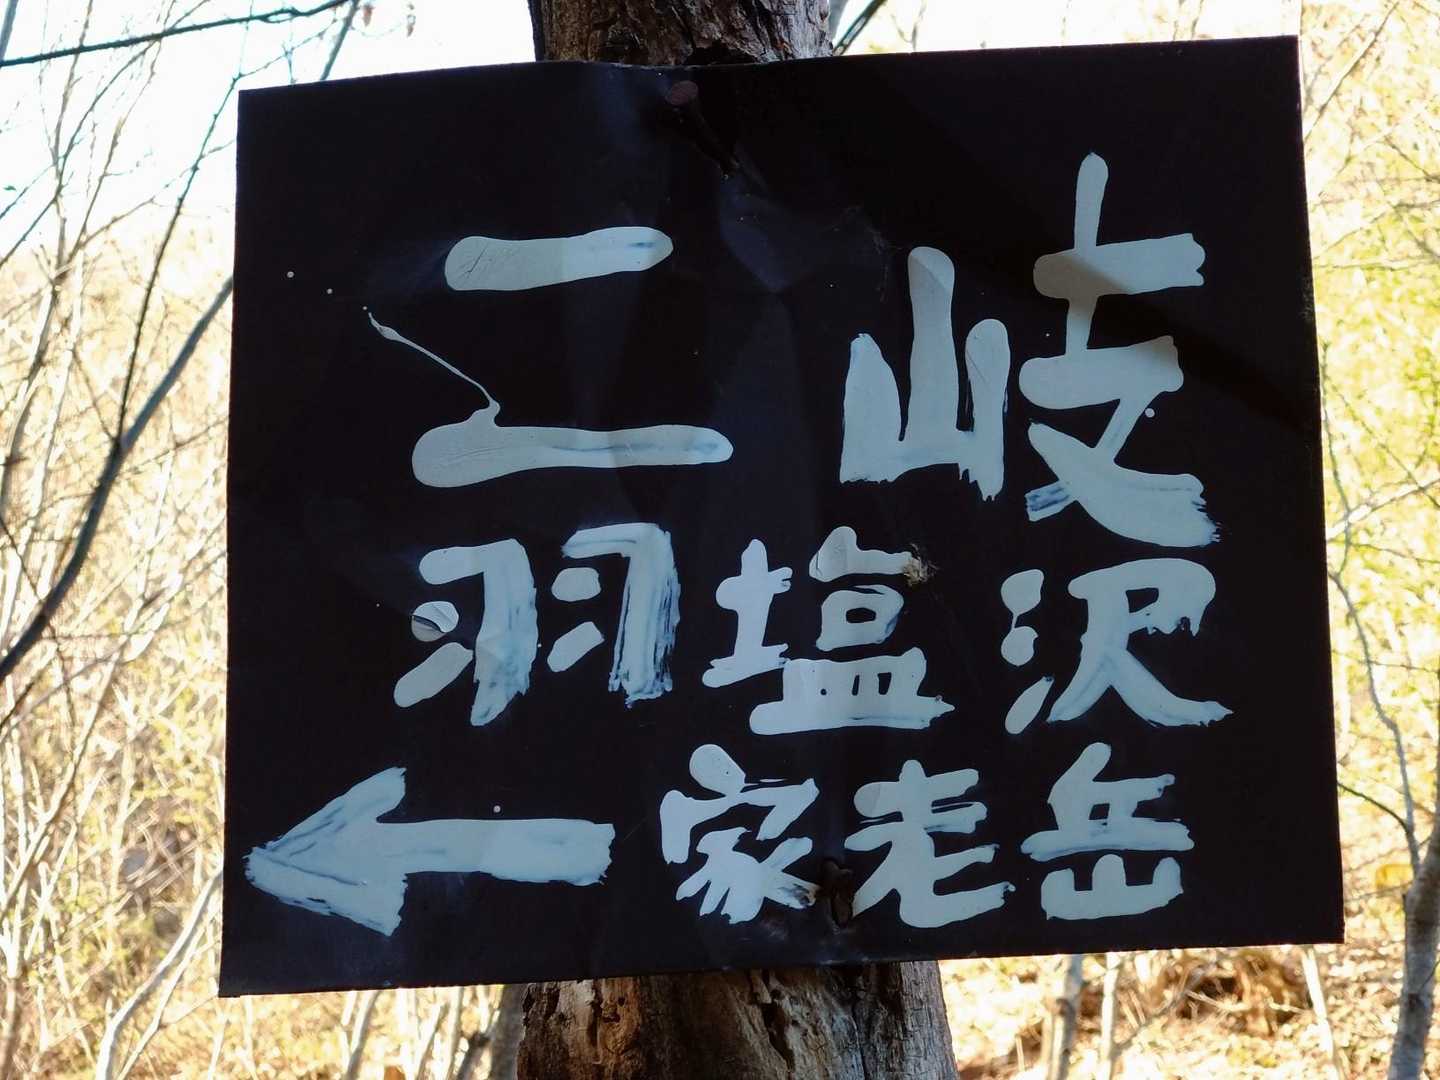 二岐
羽塩沢
←家老岳